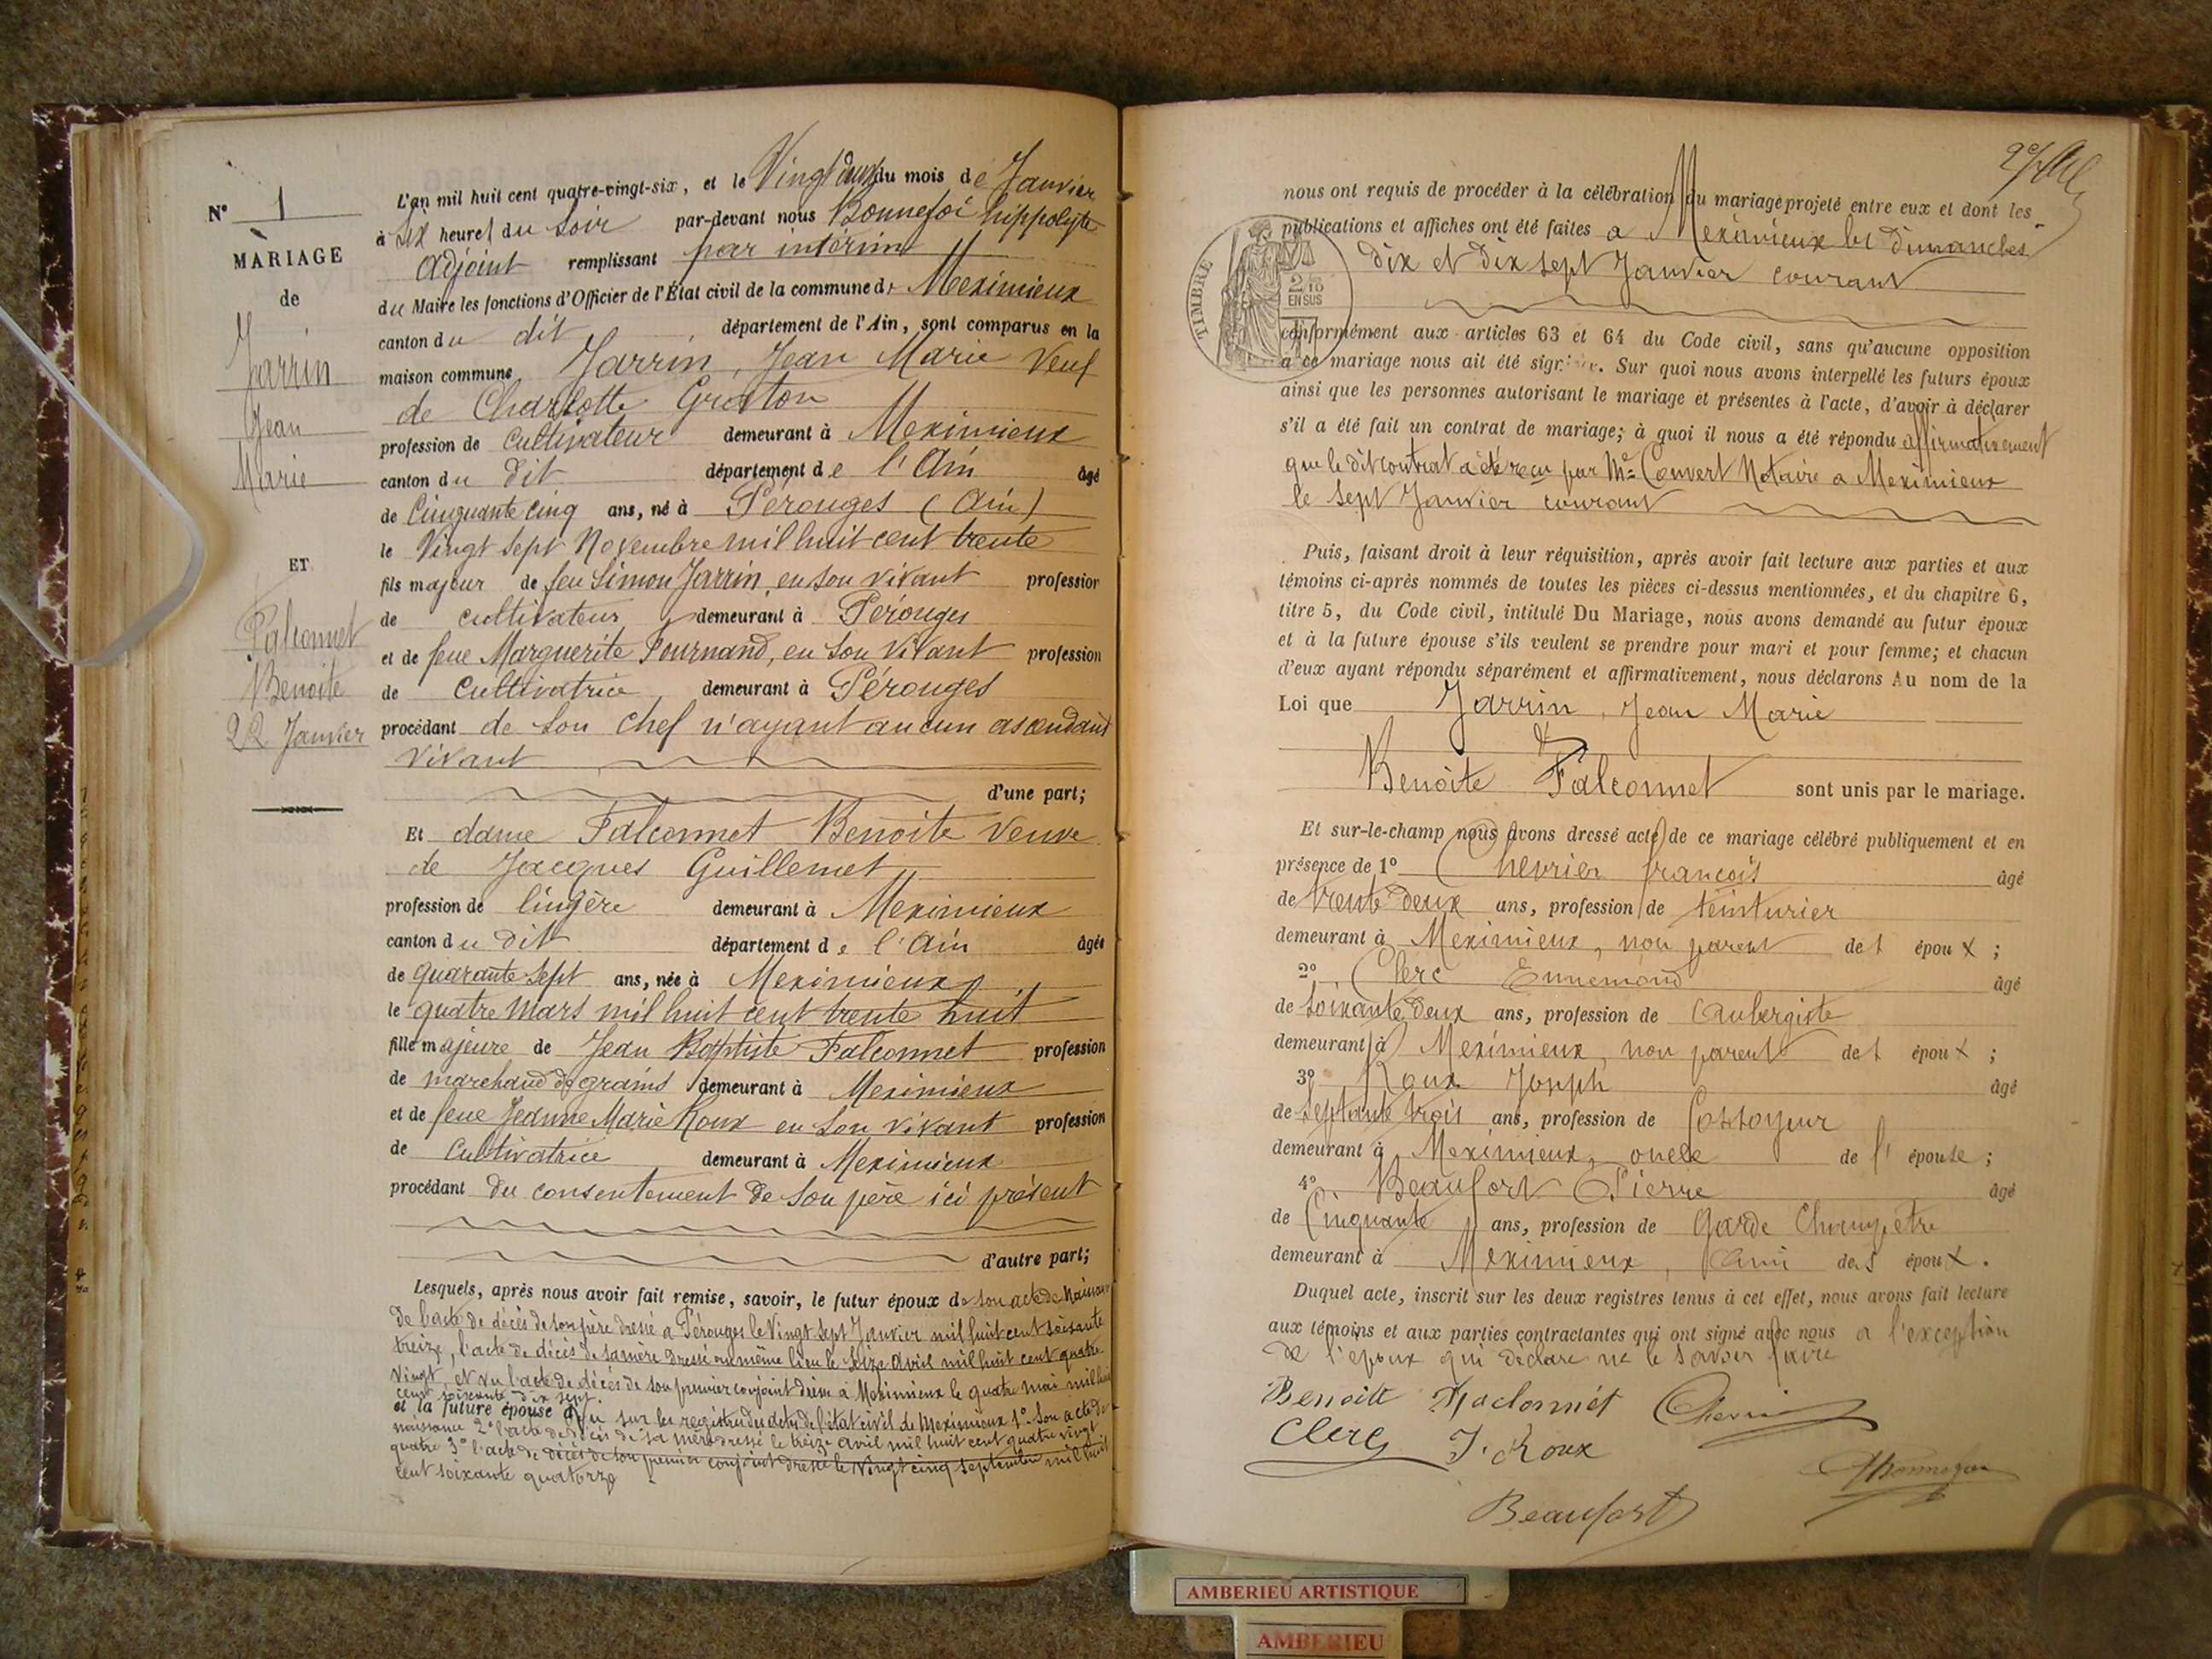 N° 1
MARIAGE
de
Jarrin
Jean
Marie
ET
Falconnet
Benoite
22 Janvier
L'an mil huit cent quatre-vingt-six, et le Vingt deux du mois de Janvier
à six heures du soir par-devant nous Bonnefoi hippolyte
adjoint remplissant par intérim
du Maire les fonctions d'Officier de l'État civil de la commune de Meximieux
canton du dit département de l'Ain, sont comparus en la
maison commune Jarrin, Jean Marie Veuf
de Charlotte Gratton
profession de cultivateur demeurant à Meximieux
canton du dit département de l'Ain âgé
de Cinquante cinq ans, né à Pérouges (Ain)
le Vingt sept Novembre mil huit cent trente
fils majeur de feu Simon Jarrin, en son vivant profession
de cultivateur demeurant à Pérouges
et de feue Marguerite Pournand, en son vivant profession
de cultivatrice demeurant à Pérouges
procédant de son chef n'ayant aucun ascendant
vivant
d'une part;
Et dame Falconnet Benoite Veuve
de Jacques Guillemet
profession de lingère demeurant à Meximieux
canton du dit département de l'Ain âgée
de quarante sept ans, née à Meximieux
le quatre Mars mil huit cent trente huit
fille majeure de Jean Baptiste Falconnet profession
de marchand de grains demeurant à Meximieux
et de feue Jeanne Marie Roux en son vivant profession
de Cultivatrice demeurant à Meximieux
procédant du consentement de son père ici présent
d'autre part;
Lesquels, après nous avoir fait remise, savoir, le futur époux de son acte de Naissance
De l'acte de décès de son père dressé a Pérouges le Vingt Sept Janvier mil huit cent soixante
treize, l'acte de décès de sa mère dressé au même lieu le seize avril mil huit cent quatre
Vingt, et vu l'acte de décès de son premier conjoint dressé à Meximieux le quatre mai mil huit
cent soixante dix sept
et la future épouse Vu sur les registres des actes de l'état civil de Meximieux 1° Son acte de
naissance 2° l'acte de décès de sa mère dressé le treize avril mil huit cent quatre vingt
quatre 3° l'acte de décès de son premier conjoint dressé le Vingt cinq septembre mil huit
cent soixante quatorze
nous ont requis de procéder à la célébration du mariage projeté entre eux et dont les
publications et affiches ont été faites a Meximieux les dimanches
dix et dix sept Janvier courant
TIMBRE
2/10
EN SUS
conformément aux articles 63 et 64 du Code civil, sans qu'aucune opposition
à ce mariage nous ait été signifiée. Sur quoi nous avons interpellé les futurs époux
ainsi que les personnes autorisant le mariage et présentes à l'acte, d'avoir à déclarer
s'il a été fait un contrat de mariage; à quoi il nous a été répondu affirmativement
que le dit contrat a été reçu par Me Convert Notaire a Meximieux
le sept Janvier courant
Puis, faisant droit à leur réquisition, après avoir fait lecture aux parties et aux
témoins ci-après nommés de toutes les pièces ci-dessus mentionnées, et du chapitre 6,
titre 5, du Code civil, intitulé Du Mariage, nous avons demandé au futur époux
et à la future épouse s'ils veulent se prendre pour mari et pour femme; et chacun
d'eux ayant répondu séparément et affirmativement, nous déclarons Au nom de la
Loi que Jarrin, Jean Marie
&
Benoite Falconnet sont unis par le mariage.
Et sur-le-champ nous avons dressé acte de ce mariage célébré publiquement et en
présence de 1° Chevrier françois âgé
de trente deux ans, profession de teinturier
demeurant à Meximieux, non parent des époux;
2° Clerc Ennemond âgé
de soixante deux ans, profession de aubergiste
demeurant à Meximieux, non parent des époux;
3° Roux Joseph âgé
de septante trois ans, profession de Cossoyeur
demeurant à Meximieux, oncle de l'épouse;
4° Beaufort Pierre âgé
de Cinquante ans, profession de Garde Champetre
demeurant à Meximieux, ami des époux.
Duquel acte, inscrit sur les deux registres tenus à cet effet, nous avons fait lecture
aux témoins et aux parties contractantes qui ont signé avec nous a l'exception
de l'époux qui déclare ne le savoir faire
Benoite Faclonnét Chevrier
Clerc J. Roux
Beaufort
AMBERIEU ARTISTIQUE
AMBERIEU